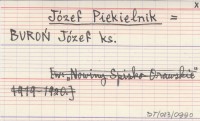 x
Józef Piekielnik =
BUROŃ Józef ks.
Ew. „Nowiny Spisko Orawskie”
1919-1920.]
DT/013/0990